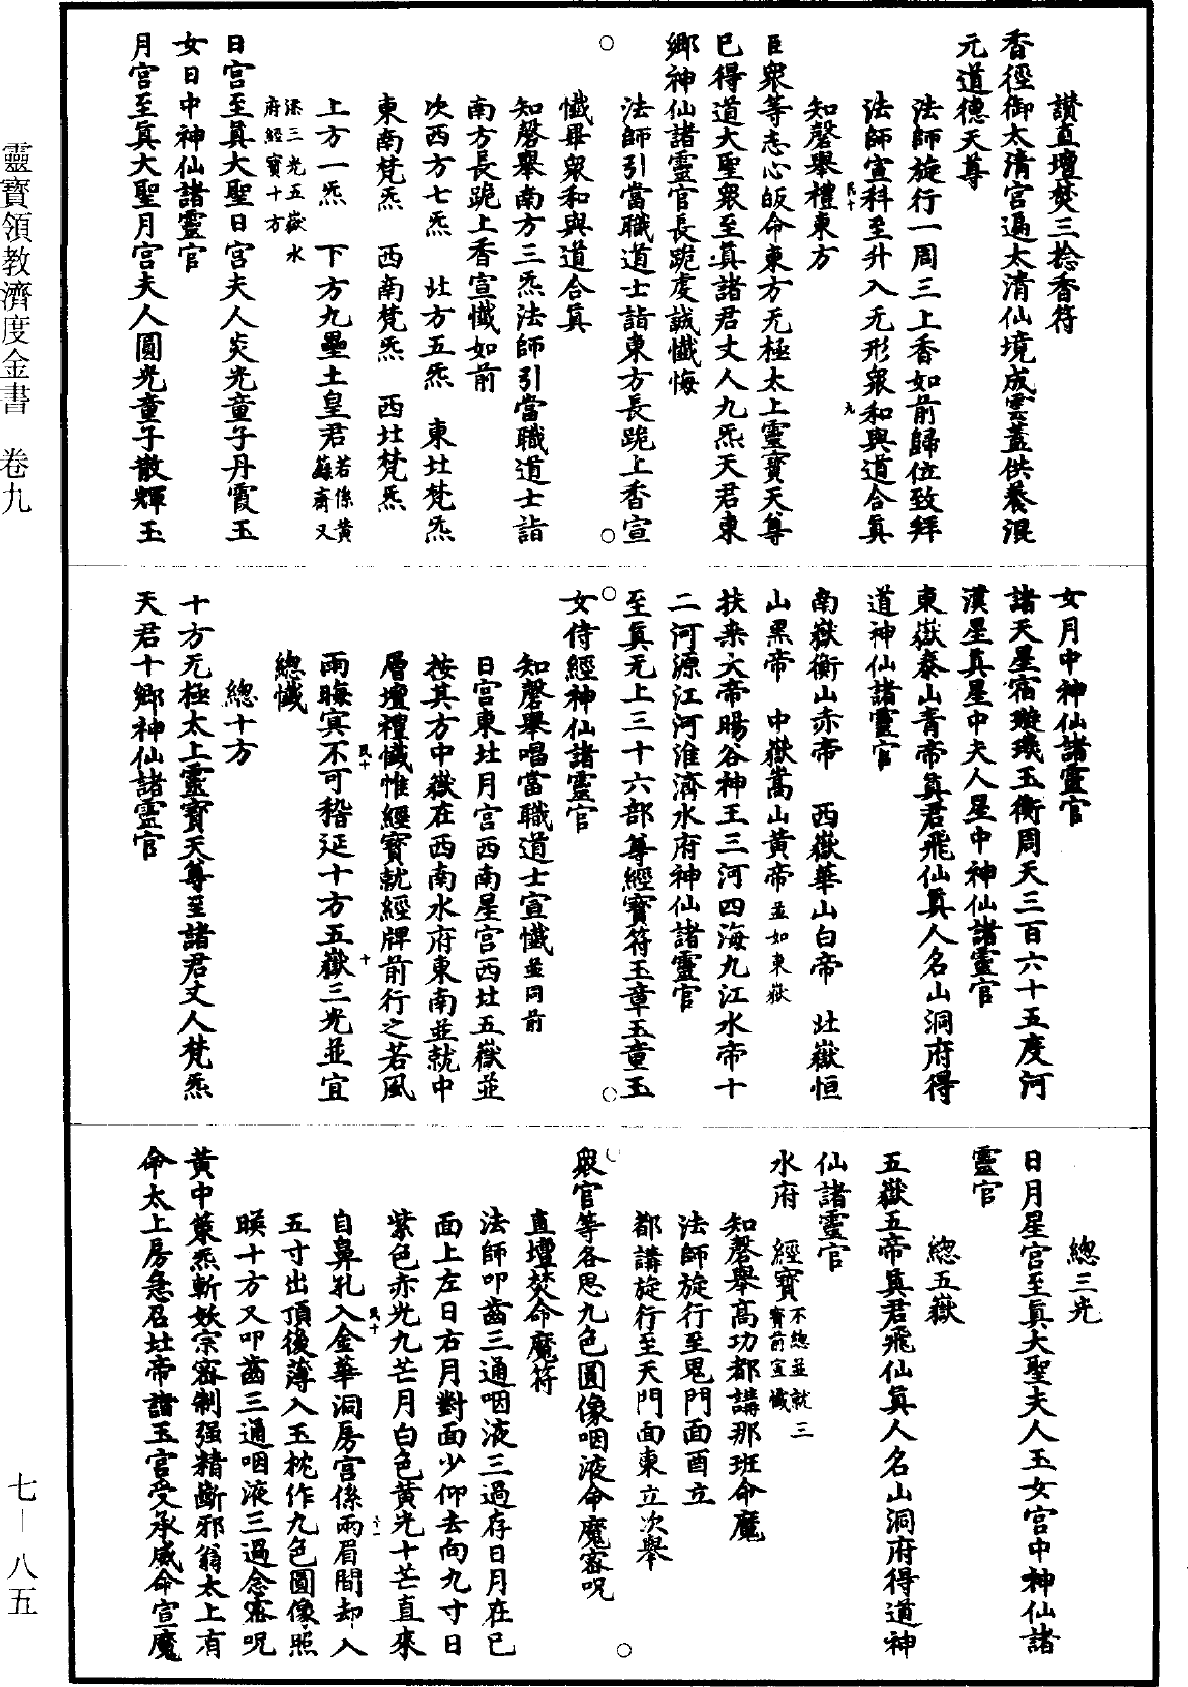 讃直壇焚三捻香符
香徑御太清宮遍太清仙境成雲蓋供養混
元道德天尊
法師旋行一周三上香如前歸位致拜
法師宣科至升入无形衆和與道合眞
知磬舉禮東方
臣衆等志心皈命東方无極太上靈寳天尊
已得道大聖衆至眞諸君丈人九炁天君東
鄉神仙諸靈官長跪虔誠懺悔
法師引當職道士詣東方長跪上香宣
懺畢衆和與道合眞
知磬舉南方三炁法師引當職道士詣
南方長跪上香宣懺如前
次西方七炁　北方五炁　東北梵炁
東南梵炁　西南梵炁　西北梵炁
上方一炁　下方九壘土皇君若係黃籙齋又
添三光五嶽水府經寳十方
日宮至眞大聖日宮夫人炎光童子丹霞玉
女日中神仙諸靈官
月宮至眞大聖月宮夫人圓光童子散輝玉
女月中神仙諸靈官
諸天星宿璇璣玉衡周天三百六十五度河
漢星眞星中夫人星中神仙諸靈官
東嶽泰山青帝眞君飛仙眞人名山洞府得
道神仙諸靈官
南嶽衡山赤帝　西嶽華山白帝　北嶽恒
山黑帝　中嶽嵩山黃帝並如東嶽
扶桒大帝暘谷神王三河四海九江水帝十
二河源江河淮濟水府神仙諸靈官
至眞无上三十六部尊經寳符玉章玉童玉
女侍經神仙諸靈官
知磬舉唱當職道士宣懺並同前
日宮東北月宮西南星宮西北五嶽並
按其方中嶽在西南水府東南並就中
層壇禮懺惟經寳就經牌前行之若風
雨晦冥不可稽延十方五嶽三光並宜
總懺
總十方
十方无極太上靈寳天尊至諸君丈人梵炁
天君十鄉神仙諸靈官
總三光
日月星宮至眞大聖夫人玉女宮中神仙諸
靈官
總五嶽
五嶽五帝眞君飛仙眞人名山洞府得道神
仙諸靈官
水府　經寳不總並就三寳前宣懺
知磬舉高功都講那班命魔
法師旋行至鬼門面酉立
都講旋行至天門面東立次舉
衆官等各思九色圓像咽液命魔密呪
直壇焚命魔符
法師叩齒三通咽液三過存日月在已
面上左日右月對面少仰去向九寸日
紫色赤光九芒月白色黃光十芒直來
自鼻孔入金華洞房宮係兩眉間却入
五寸出頂後薄入玉枕作九色圓像照
暎十方又叩齒三通咽液三過念密呪
黃中策炁斬妖宗密制强精斷邪翁太上有
命太上房急召北帝詣玉宮受承威命宣魔
靈寶領教濟度金書　卷九
七—八五